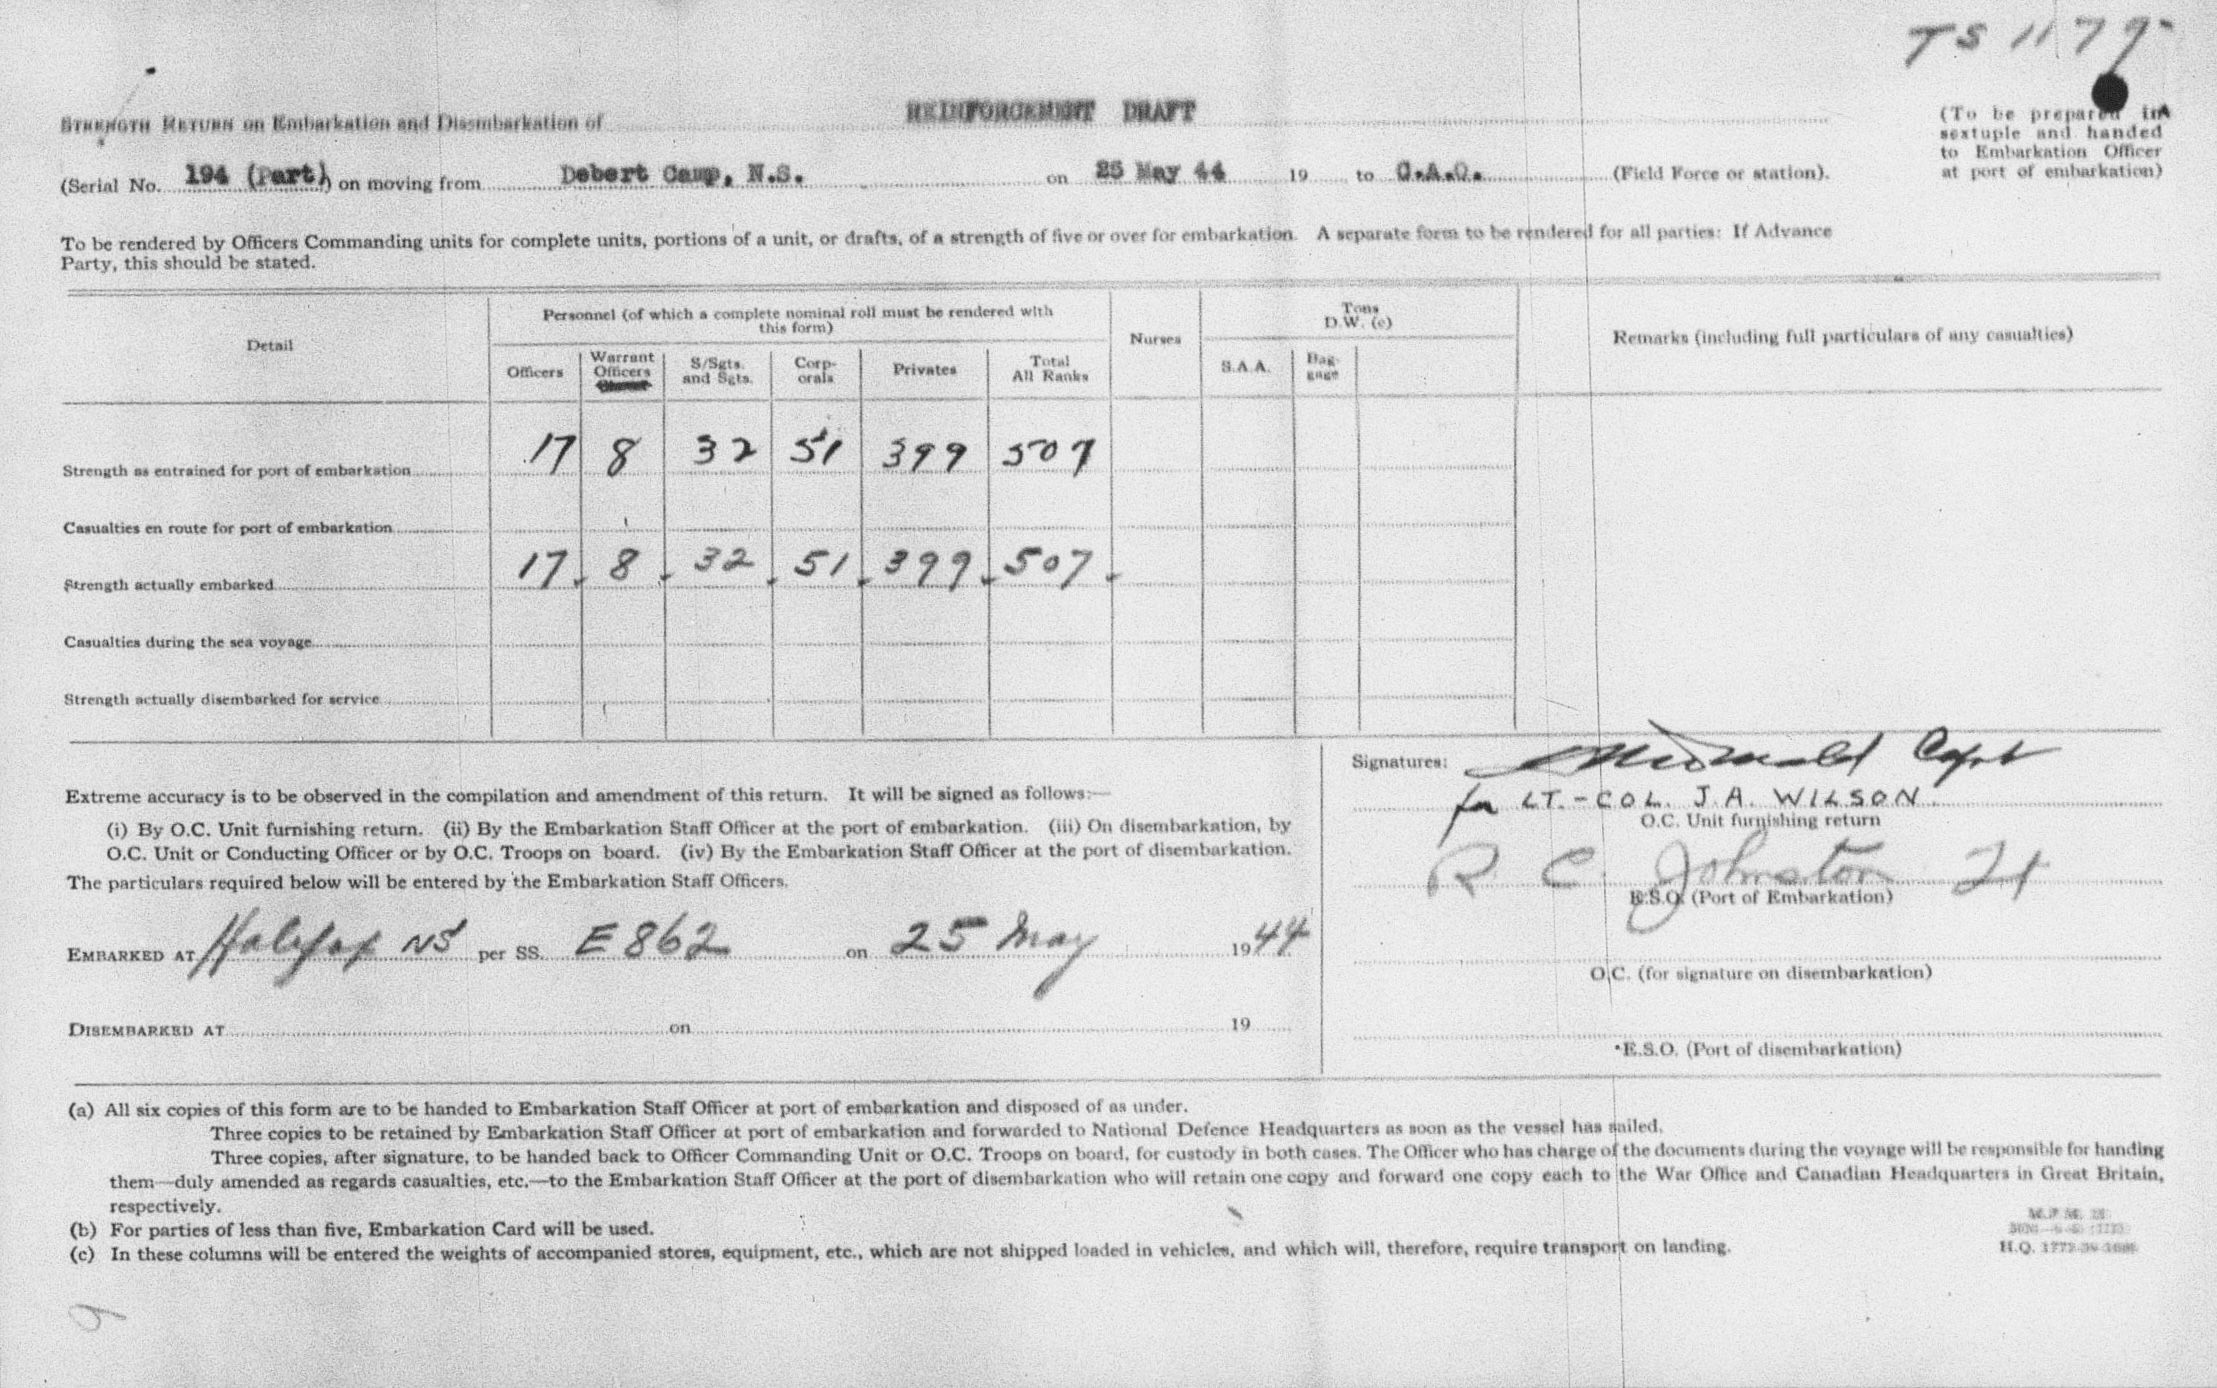 TS 1179
STRENGTH RETURN on Embarkation and Disembarkation of REINFORCEMENT DRAFT
(To be prepared in sextuple and handed to Embarkation Officer at port of embarkation)
(Serial No. 194 (Part)) on moving from Debert Camp, N.S. on 25 May 44 19 to C.A.O. (Field Force or station).
To be rendered by Officers Commanding units for complete units, portions of a unit, or drafts, of a strength of five or over for embarkation. A separate form to be rendered for all parties: If Advance
Party, this should be stated.
Detail
Personnel (of which a complete nominal roll must be rendered with this form)
Nurses
Tons D.W. (c)
Remarks (including full particulars of any casualties)
Officers Warrant Officers S/Sgts. and Sgts. Corp-orals Privates Total All Ranks S.A.A. Bag-gage
Strength as entrained for port of embarkation 17 8 32 51 399 507
Casualties en route for port of embarkation
Strength actually embarked 17 8 32 51 399 507
Casualties during the sea voyage
Strength actually disembarked for service
Extreme accuracy is to be observed in the compilation and amendment of this return. It will be signed as follows:—
(i) By O.C. Unit furnishing return. (ii) By the Embarkation Staff Officer at the port of embarkation. (iii) On disembarkation, by
O.C. Unit or Conducting Officer or by O.C. Troops on board. (iv) By the Embarkation Staff Officer at the port of disembarkation.
The particulars required below will be entered by the Embarkation Staff Officers.
EMBARKED AT Halifax NS per SS. E862 on 25 May 1944
DISEMBARKED AT on 19
Signatures: Capt
for LT.-COL. J.A. WILSON
O.C. Unit furnishing return
R C. Johnston Lt
E.S.O. (Port of Embarkation)
O.C. (for signature on disembarkation)
E.S.O. (Port of disembarkation)
(a) All six copies of this form are to be handed to Embarkation Staff Officer at port of embarkation and disposed of as under.
Three copies to be retained by Embarkation Staff Officer at port of embarkation and forwarded to National Defence Headquarters as soon as the vessel has sailed.
Three copies, after signature, to be handed back to Officer Commanding Unit or O.C. Troops on board, for custody in both cases. The Officer who has charge of the documents during the voyage will be responsible for handing
them—duly amended as regards casualties, etc.—to the Embarkation Staff Officer at the port of disembarkation who will retain one copy and forward one copy each to the War Office and Canadian Headquarters in Great Britain,
respectively.
(b) For parties of less than five, Embarkation Card will be used.
(c) In these columns will be entered the weights of accompanied stores, equipment, etc., which are not shipped loaded in vehicles, and which will, therefore, require transport on landing.
H.Q.